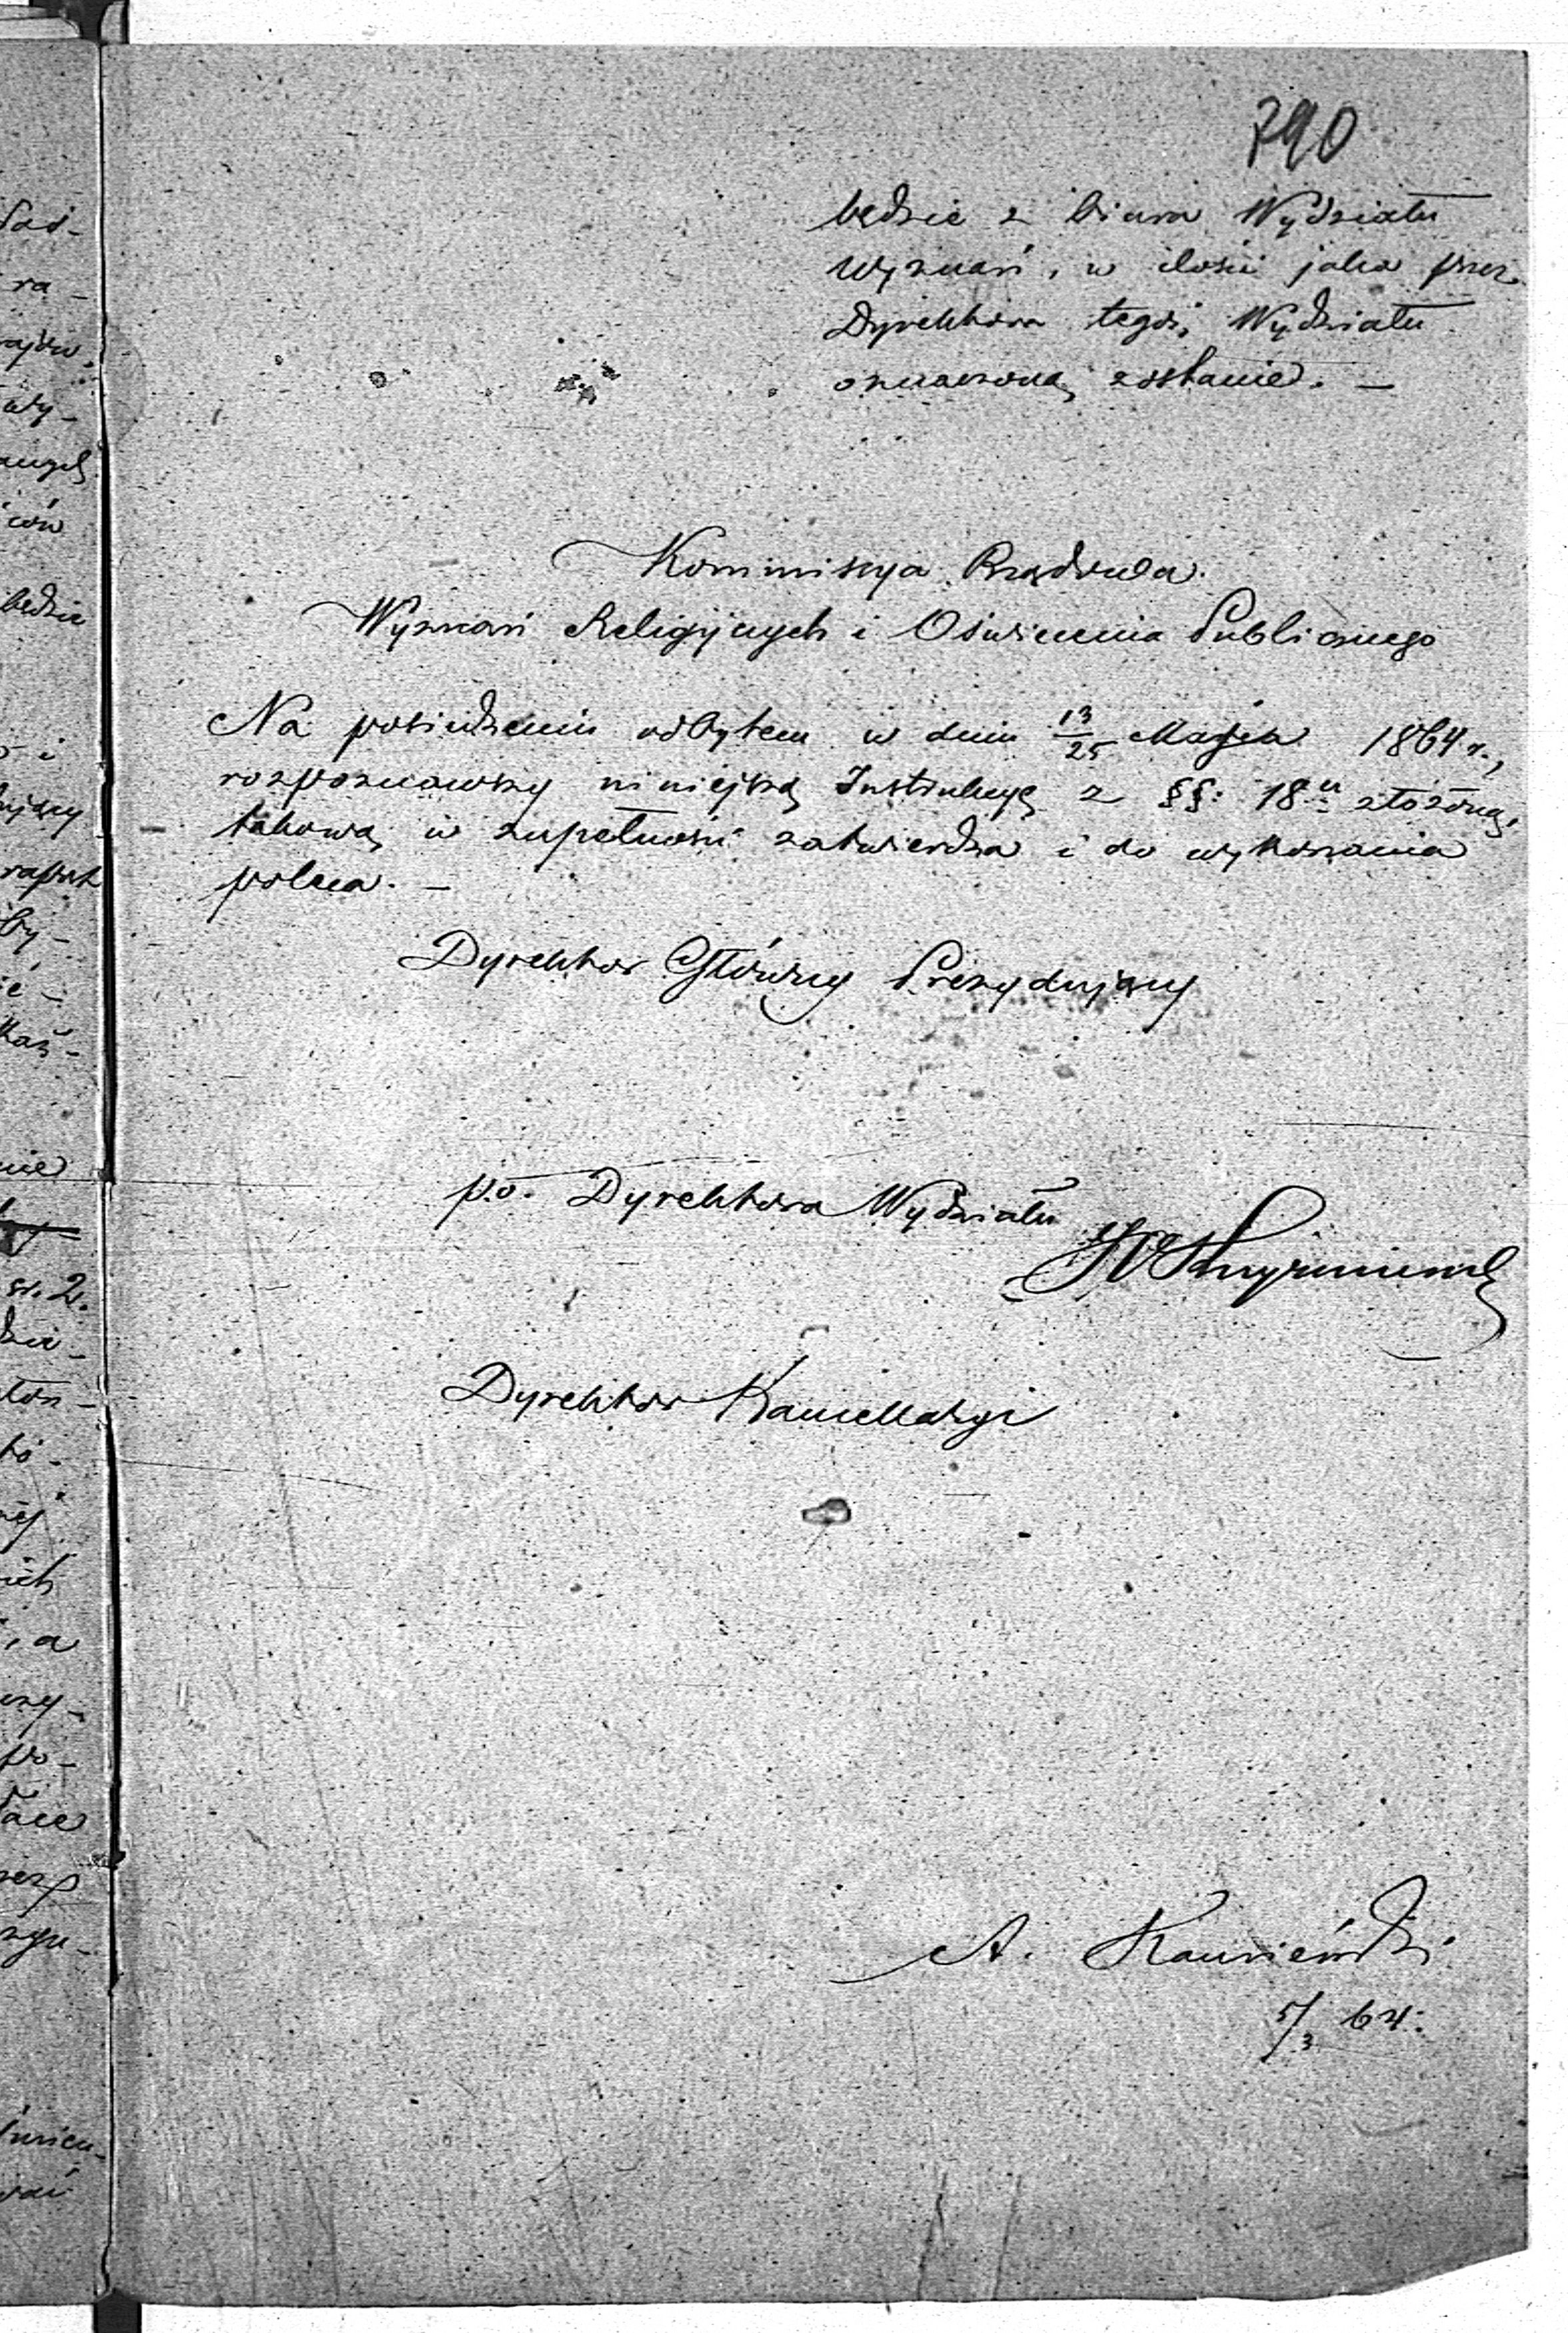 790
będzie z biura Wydziału
Wyznań, w ilości jaka przez
Dyrektora tegoż Wydziału
oznaczoną zostanie. —
Kommissya Rządowa
Wyznań Religijnych i Oświecenia Publicznego
Na posiedzeniu odbytem w dniu 13/25 Maja 1864 r.,
rozpoznawszy niniejszą Instrukcyę z §§: 18u złożoną,
takową w zupełności zatwierdza i do wykonania
poleca. —
Dyrektor Główny Prezydujący
p.o. Dyrektora Wydziału
Dyrektor Kancellaryi
A. Kamieński
5/3 64.